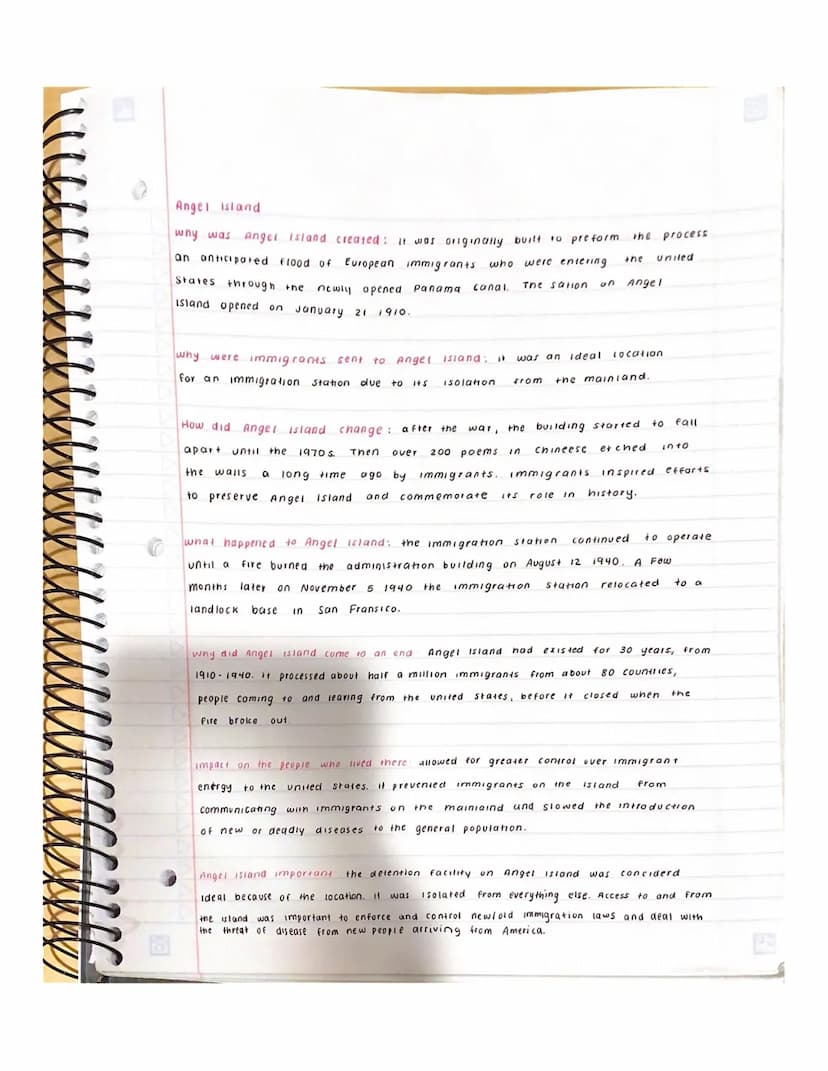 Angel Island
Why was Angel Island created: It was originally built to preform the process
an anticipated flood of European immigrants who were entering the united
States through the newly opened Panama Canal. The sation on Angel
Island opened on January 21 1910.
Why were immigrants sent to Angel Island: it was an ideal location
for an immigration station due to its isolation from the mainland.
How did Angel Island change: after the war, the building started to fall
apart until the 1970s. Then over 200 poems in chineese etched into
the walls a long time ago by immigrants. immigrants inspired efforts
to preserve Angel Island and commemorate its role in history.
What happened to Angel Island: the immigration station continued to operate
until a fire burned the administration building on August 12 1940. A Few
months later on November 5 1940 the immigration station relocated to a
landlock base in San Fransico.
Why did Angel Island come to an end Angel Island had existed for 30 years, from
1910-1940. it processed about half a million immigrants from about 80 countries,
people coming to and leaving from the united States, before it closed when the
fire broke out.
impact on the people who lived there: allowed for greater control over immigrant
entrgy to the united States. it prevented immigrants on the island from
communicating with immigrants on the mainland and slowed the introduction
of new or deadly diseases to the general population.
Angel Island important the detention facility on Angel Island was conciderd
ideal because of the location. it was isolated from everything else. Access to and from
the island was important to enforce and control new/old immigration laws and deal with
the threat of disease from new people arriving from America.